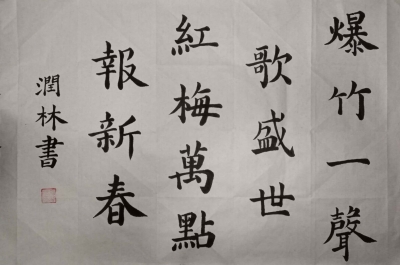 爆竹一聲
歌盛世
紅梅萬點
報新春
潤林書